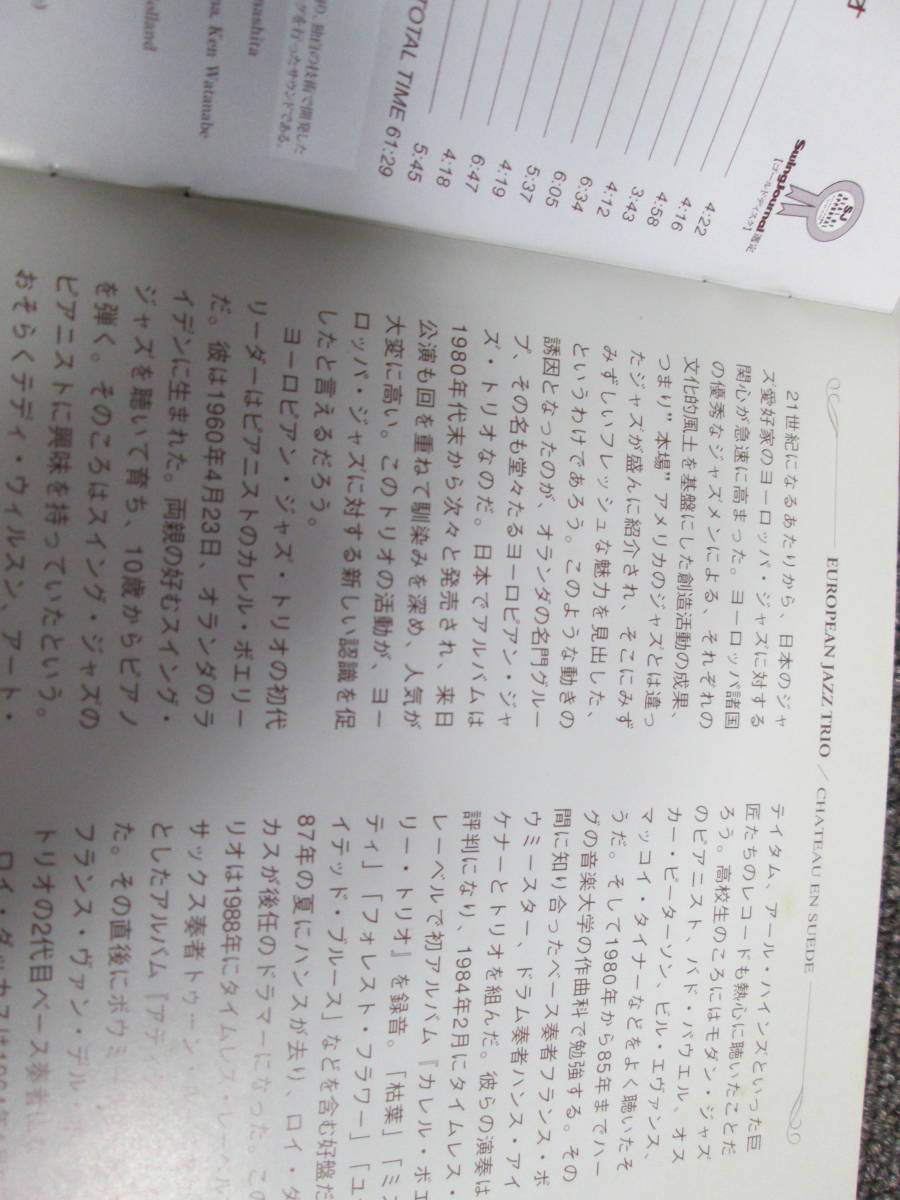 オ
SwingJournal選定
[ゴールドディスク]
SJ
4:22
4:16
4:58
3:43
4:12
6:34
6:05
5:37
4:19
6:47
4:18
5:45
TOTAL TIME 61:29
独自の技術で開発した
を行ったサウンドである。
Ken Watanabe
EUROPEAN JAZZ TRIO / CHATEAU EN SUEDE
21世紀になるあたりから、日本のジャ
ズ愛好家のヨーロッパ・ジャズに対する
関心が急速に高まった。ヨーロッパ諸国
の優秀なジャズメンによる、それぞれの
文化的風土を基盤にした創造活動の成果、
つまり”本場”アメリカのジャズとは違っ
たジャズが盛んに紹介され、そこにみず
みずしいフレッシュな魅力を見出した、
というわけであろう。このような動きの
誘因となったのが、オランダの名門グルー
プ、その名も堂々たるヨーロピアン・ジャ
ズ・トリオなのだ。日本でアルバムは
1980年代末から次々と発売され、来日
公演も回を重ねて馴染みを深め、人気が
大変に高い。このトリオの活動が、ヨー
ロッパ・ジャズに対する新しい認識を促
したと言えるだろう。
ヨーロピアン・ジャズ・トリオの初代
リーダーはピアニストのカレル・ボエリー
だ。彼は1960年4月23日、オランダのラ
イデンに生まれた。両親の好むスイング・
ジャズを聴いて育ち、10歳からピアノ
を弾く。そのころはスイング・ジャズの
ピアニストに興味を持っていたという。
おそらくテディ・ウィルスン、アート・
テイタム、アール・ハインズといった巨
匠たちのレコードも熱心に聴いたことだ
ろう。高校生のころにはモダン・ジャズ
のピアニスト、バド・パウエル、オス
カー・ピーターソン、ビル・エヴァンス、
マッコイ・タイナーなどをよく聴いたそ
うだ。そして1980年から85年までハー
グの音楽大学の作曲科で勉強する。その
間に知り合ったベース奏者フランス・ボ
ウミースター、ドラム奏者ハンス・アイ
ケナーとトリオを組んだ。彼らの演奏は
評判になり、1984年2月にタイムレス・
レーベルで初アルバム『カレル・ボエ
リー・トリオ』を録音。「枯葉」「ミン
ティ」「フォレスト・フラワー」「ユ
イテッド・ブルース」などを含む好盤だ
87年の夏にハンスが去り、ロイ・ダ
カスが後任のドラマーになった。この
リオは1988年にタイムレス・レーベル
サックス奏者トゥーン・
としたアルバム『アテ
た。その直後にボウミー
フランス・ヴァン・デル・
トリオの2代目ベース奏者に
ロイ・ダッカスは